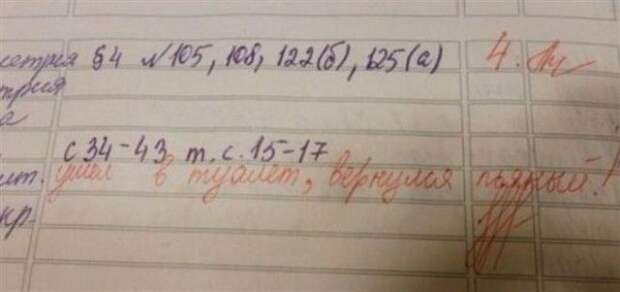 етрия §4 №105, 108, 122(б), 125(а) 4.
трия
а
с 34-43 т.с. 15-17
ит. ушел в туалет, вернулся пьяный!
кр.